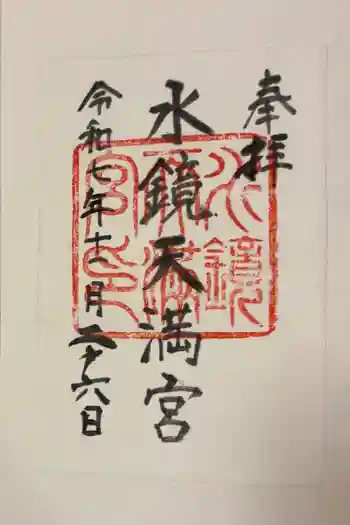 奉拝
水鏡天満宮
令和七年十一月二十六日